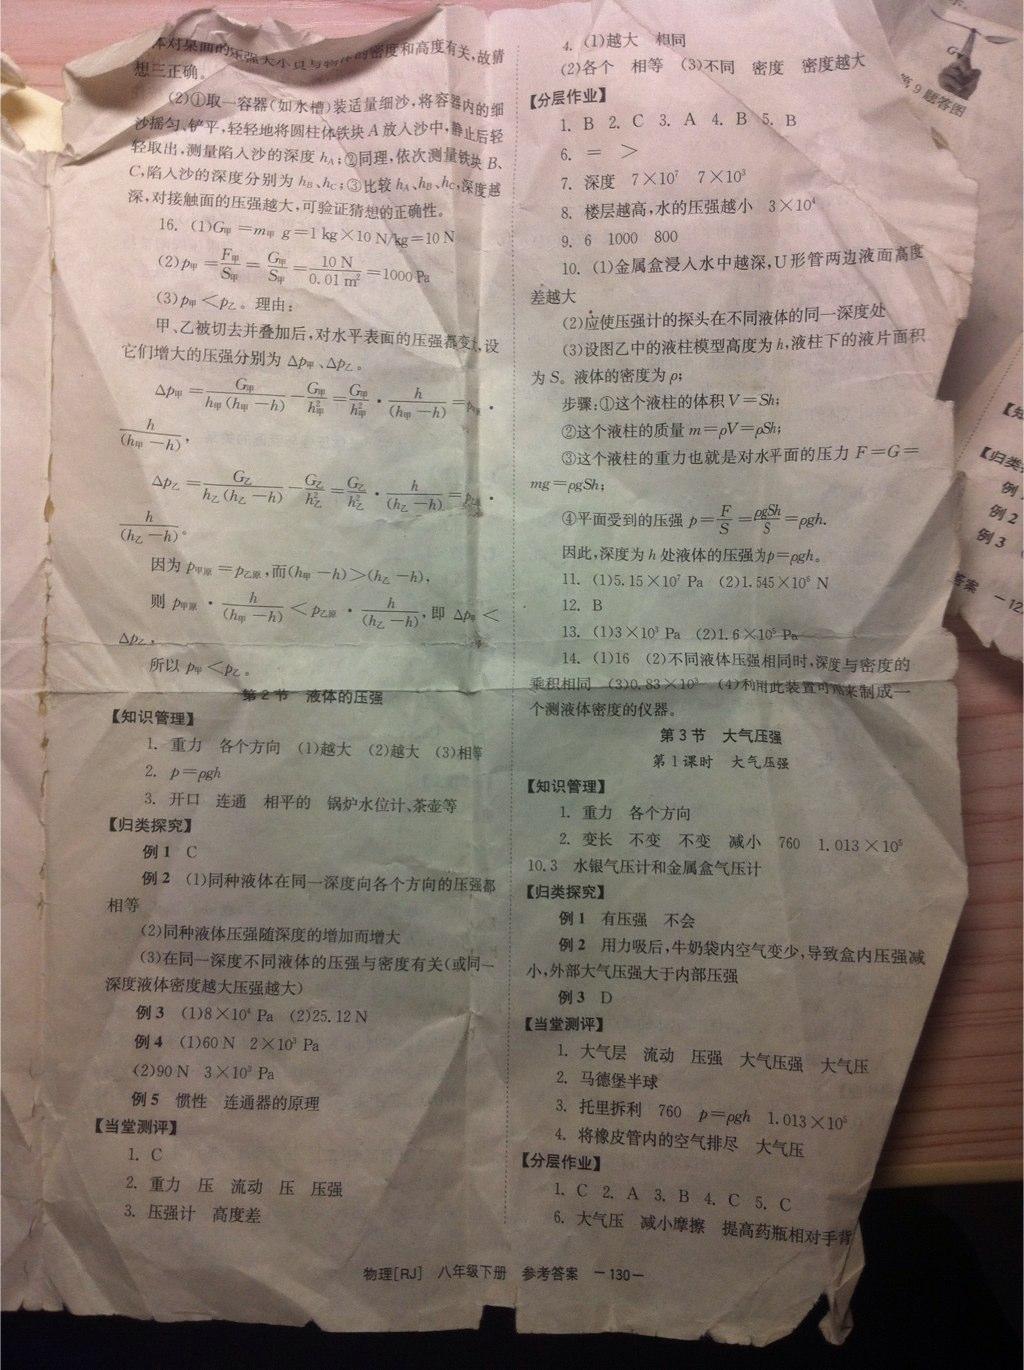 体对桌面的压强大小只与物体的密度和高度有关,故猜
想三正确。
(2)①取一容器(如水槽)装适量细沙,将容器内的细
沙摇匀、铲平,轻轻地将圆柱体铁块A放入沙中,静止后轻
轻取出,测量陷入沙的深度hA;②同理,依次测量铁块B、
C,陷入沙的深度分别为hB、hC;③比较hA、hB、hC,深度越
深,对接触面的压强越大,可验证猜想的正确性。
16. (1)G甲=m甲 g=1 kg×10 N/kg=10 N
(2)p甲=F甲/S甲=G甲/S甲=10 N/0.01 m²=1000 Pa
(3)p甲<p乙。理由:
甲、乙被切去并叠加后,对水平表面的压强都变大,设
它们增大的压强分别为 Δp甲、Δp乙。
Δp甲=G甲/h甲(h甲-h)-G甲/h甲²=G甲/h甲²·h/(h甲-h)=p甲原·
h/(h甲-h),
Δp乙=G乙/h乙(h乙-h)-G乙/h乙²=G乙/h乙²·h/(h乙-h)=p乙原·
h/(h乙-h)。
因为 p甲原=p乙原,而(h甲-h)>(h乙-h),
则 p甲原·h/(h甲-h)<p乙原·h/(h乙-h),即 Δp甲<
Δp乙,
所以 p甲<p乙。
第2节 液体的压强
【知识管理】
1. 重力 各个方向 (1)越大 (2)越大 (3)相等
2. p=ρgh
3. 开口 连通 相平的 锅炉水位计、茶壶等
【归类探究】
例1 C
例2 (1)同种液体在同一深度向各个方向的压强都
相等
(2)同种液体压强随深度的增加而增大
(3)在同一深度不同液体的压强与密度有关(或同一
深度液体密度越大压强越大)
例3 (1)8×10⁴ Pa (2)25.12 N
例4 (1)60 N 2×10³ Pa
(2)90 N 3×10³ Pa
例5 惯性 连通器的原理
【当堂测评】
1. C
2. 重力 压 流动 压 压强
3. 压强计 高度差
4. (1)越大 相同
(2)各个 相等 (3)不同 密度 密度越大
【分层作业】
1. B 2. C 3. A 4. B 5. B
6. = >
7. 深度 7×10⁷ 7×10³
8. 楼层越高,水的压强越小 3×10⁴
9. 6 1000 800
10. (1)金属盒浸入水中越深,U形管两边液面高度
差越大
(2)应使压强计的探头在不同液体的同一深度处
(3)设图乙中的液柱模型高度为h,液柱下的液片面积
为S。液体的密度为ρ;
步骤:①这个液柱的体积V=Sh;
②这个液柱的质量m=ρV=ρSh;
③这个液柱的重力也就是对水平面的压力F=G=
mg=ρgSh;
④平面受到的压强p=F/S=ρgSh/S=ρgh.
因此,深度为h处液体的压强为p=ρgh。
11. (1)5.15×10⁷ Pa (2)1.545×10⁵ N
12. B
13. (1)3×10³ Pa (2)1.6×10⁵ Pa
14. (1)16 (2)不同液体压强相同时,深度与密度的
乘积相同 (3)0.83×10³ (4)利用此装置可用来制成一
个测液体密度的仪器。
第3节 大气压强
第1课时 大气压强
【知识管理】
1. 重力 各个方向
2. 变长 不变 不变 减小 760 1.013×10⁵
10.3 水银气压计和金属盒气压计
【归类探究】
例1 有压强 不会
例2 用力吸后,牛奶袋内空气变少,导致盒内压强减
小,外部大气压强大于内部压强
例3 D
【当堂测评】
1. 大气层 流动 压强 大气压强 大气压
2. 马德堡半球
3. 托里拆利 760 p=ρgh 1.013×10⁵
4. 将橡皮管内的空气排尽 大气压
【分层作业】
1. C 2. A 3. B 4. C 5. C
6. 大气压 减小摩擦 提高药瓶相对手背
物理[RJ] 八年级下册 参考答案 -130-
G
第9题答图
【知
【归类
例
例2
例3
答案 -12